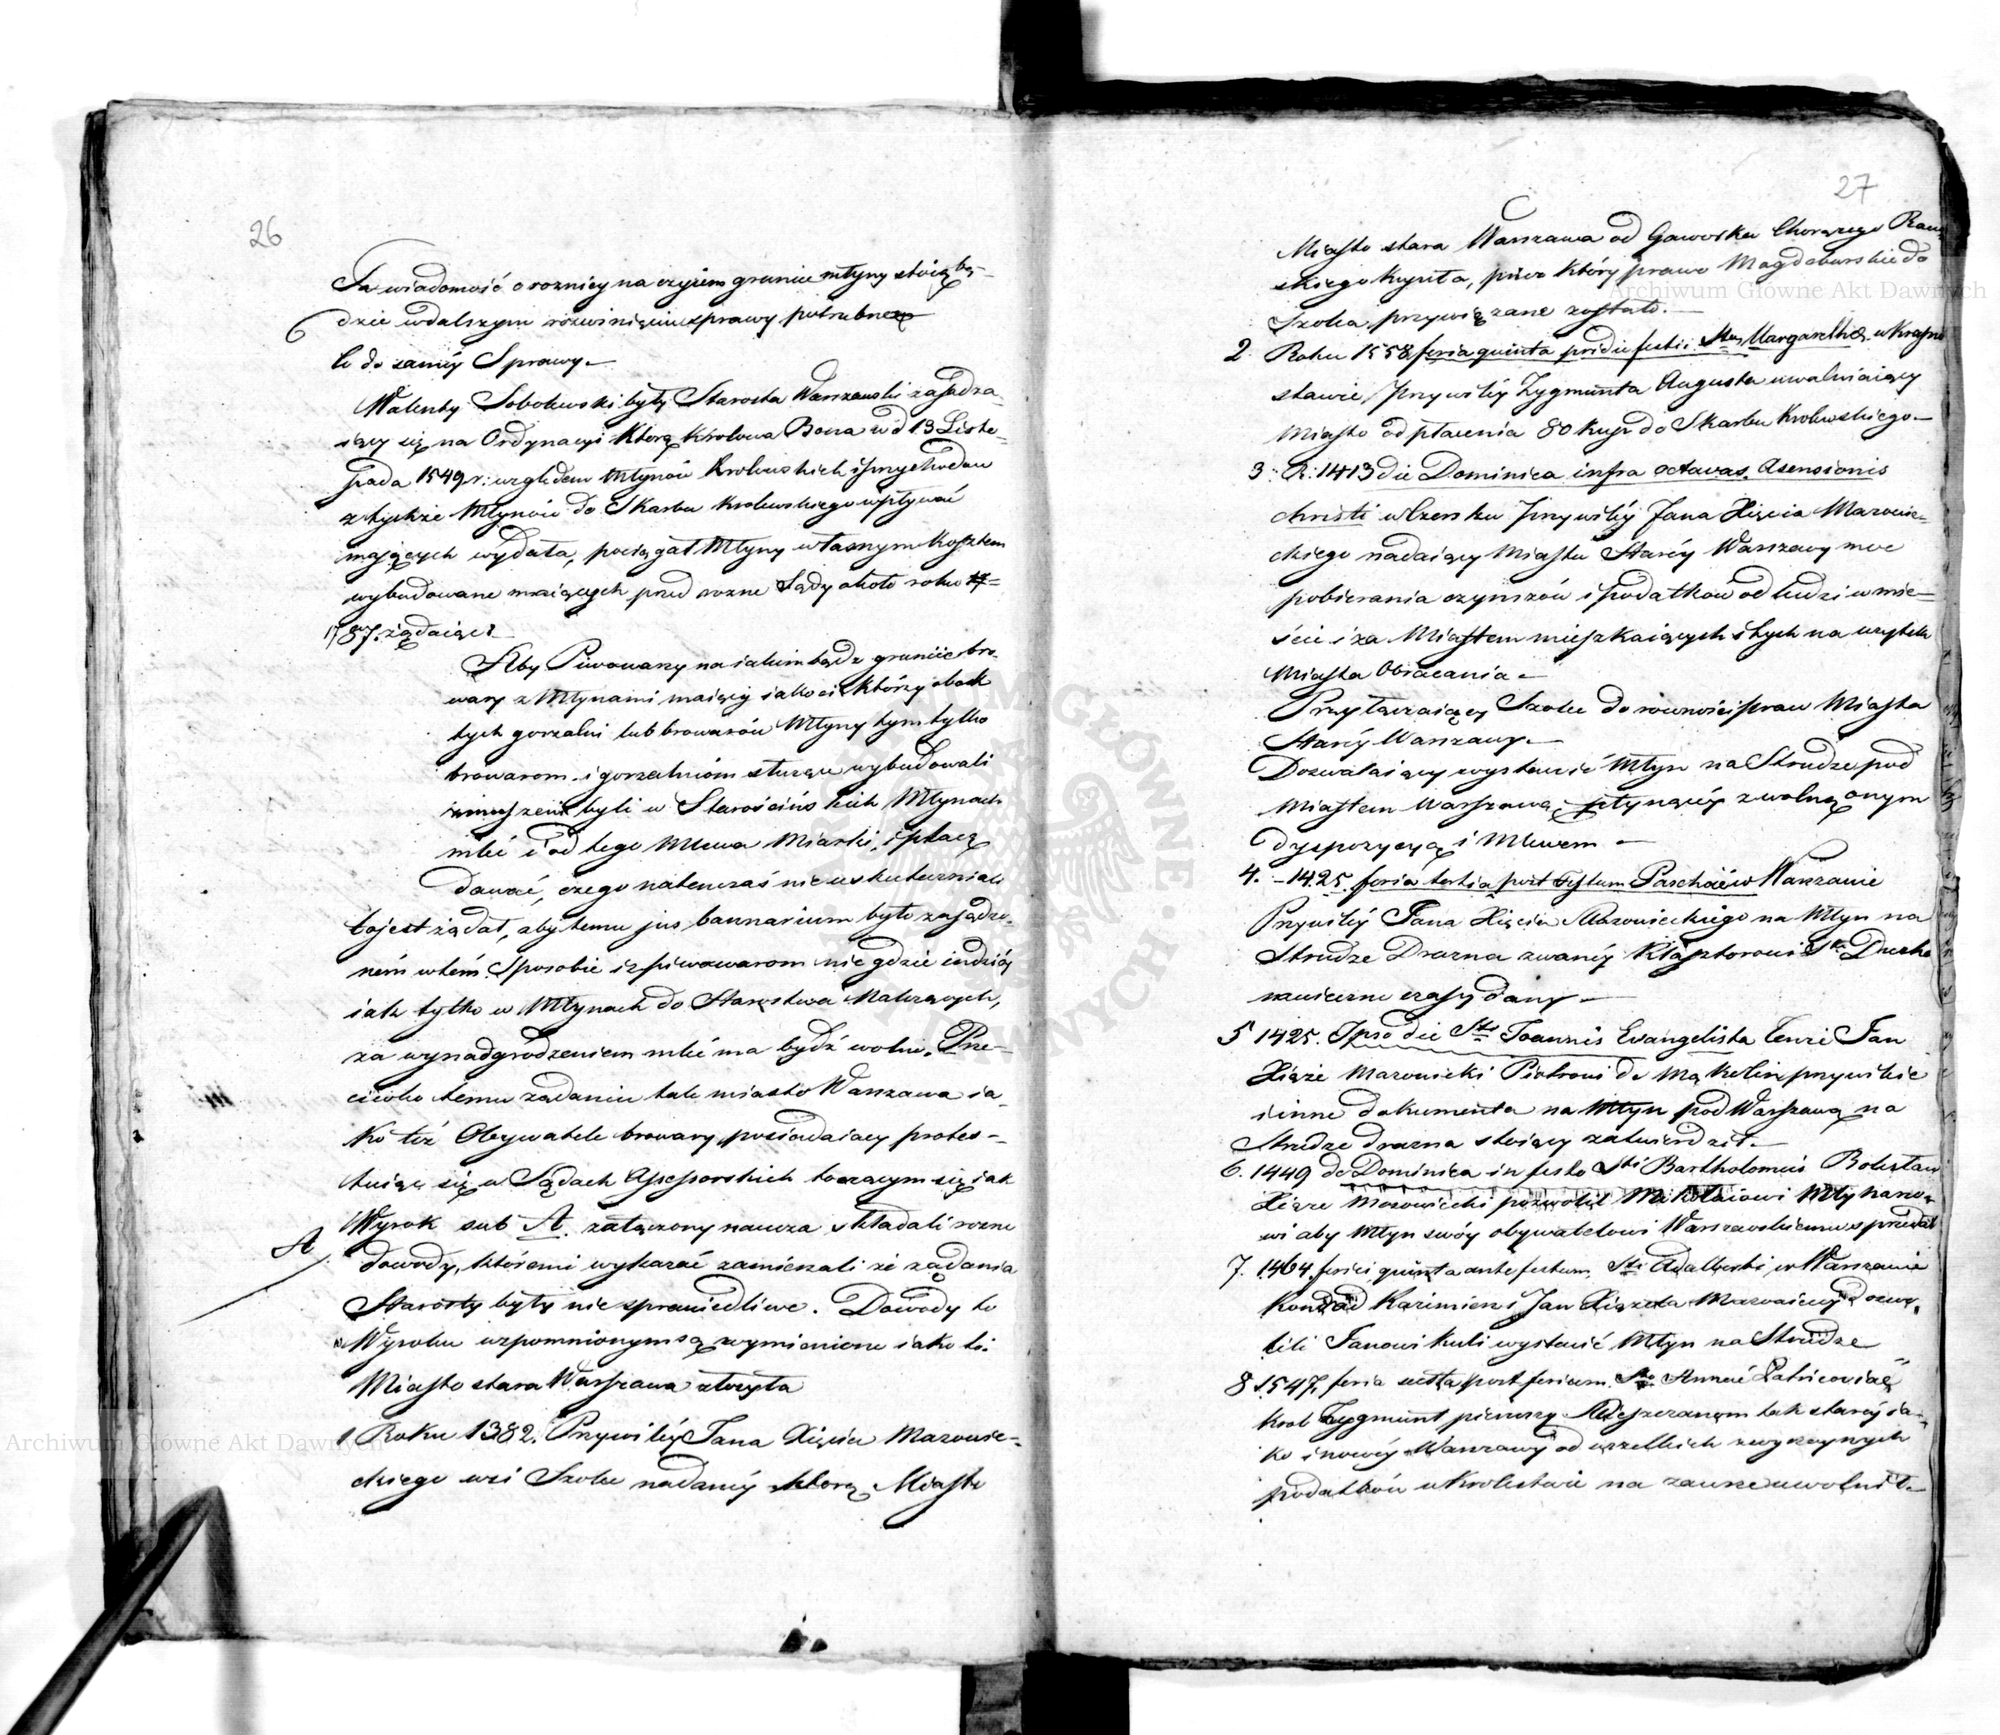 26
Ta wiadomość o roznicy na czyiem gruncie młyny stoią bę-
dzie w dalszym rozwinięciu sprawy potrzebne
6
to do saméy Sprawy.—
Walenty Sobolewski były Starosta Warszawski zasadza-
iący się na Ordynacyi którą Krolowa Bona w d 13 Listo-
pada 1549 r: względem Młynów Krolewskich i przychodow
z tychże Młynów do Skarbu Krolewskiego wpływać
mających wydała, pociągał Młyny własnym kosztem
wybudowane maiących przed rozne Sądy około roku
1787. żądaiąc:
Aby Piwowarzy na iakim bądz gruncie bro-
wary z Młynami maiący iako ci którzy obok
tych gorzalni lub browarów Młyny tym tylko
browarom i gorzelniom służące wybudowali
zmuszeni byli w Starościńskich Młynach
mleć i od tego Mlewa Miarki i płacę
dawać, czego natenczas nie uskuteczniali
to jest żądał, aby temu jus bannarium było zasądzo-
ném w tém Sposobie iż piwowarom nie gdzie indziéy
iak tylko w Młynach do Starostwa Należących,
za wynadgrodzeniem mleć ma bydź wolno. Prze-
ciwko temu żądaniu tak miasto Warszawa ia-
ko też Obywatele browary posiadaiący protes-
tuiąc się w Sądach Assessorskich toczącym się iak
Wyrok sub A. załączony naucza składali rozne
A
dowody, któremi wykazać zamierzali że żądania
Starosty były nie sprawiedliwe. Dowody to
w Wyroku wzpomnionym są wymienione iako to:
Miasto stara Warszawa złożyła
1 Roku 1382. Przywiléy Jana Xięcia Mazowie-
ckiego wsi Szolec nadanéy którą Miasto
27
Miasto stara Warszawa od Gaworka Chorązego Raw-
skiego kupiła, przez który prawo Magdeburskie do
Szolca przywiązane zostało.—
2 Roku 1558 feria quinta pridie festi Stae Margarethae w Krasno
stawie Przywiléy Zygmunta Augusta uwalniaiący
Miasto od płacenia 80 kup do Skarbu Krolewskiego.—
3. R: 1413 die Dominica infra octavas Asensionis
christi w Czersku Przywiléy Jana Xięcia Mazowie-
ckiego nadaiący Miastu Staréy Warszawy moc
pobierania czynszów i podatków od ludzi w mie-
ście i za Miastem mieszkaiących i tych na uzytek
Miasta Obracania.—
Przyłączaiący Szolec do równości praw Miasta
Staréy Warszawy.—
Dozwalaiący wystawić Młyn na Strudze pod
Miastem Warszawą płynącéy z wolną onym
dyspozycyą i Mlewem —
4. – 1425. feria tertia post Festum Paschae w Warszawie
Przywiléy Jana Xięcia Mazowieckiego na Młyn na
Strudze Drazna zwanéy Klasztorowi Sgo Ducha
na wieczne czasy dany.—
5 1425. Ipso die Sti Joannis Evangelista tenże Jan
Xiąże Mazowiecki Piotrowi de Mąkolin przywileie
i inne dokumenta na Młyn pod Warszawą na
Strudze drazna stoiący zatwierdził.—
6. 1449 de Dominica in festo Sti Bartholomei Bolesław
Xiąże Mazowiecki pozwolił Mikołaiowi Młynarzo-
wi aby Młyn swóy obywatelowi Warszawskiemu sprzedał
7. 1464. feria quinta ante festum Sti Adalberti w Warszawie
Konrad Kazimierz i Jan Xiązęta Mazowieccy dozwo-
lili Janowi Kuli wystawić Młyn na Strudze
8 1547, feria sexta post feriam Stae Annae Petricoviae
Krol Zygmunt pierwszy Mieszczanom tak staréy ia-
ko i nowéy Warszawy od wszelkich zwyczaynych
podatków w Krolestwie na zawsze uwolnił.—
Archiwum Główne Akt Dawnych
Archiwum Główne Akt Dawnych